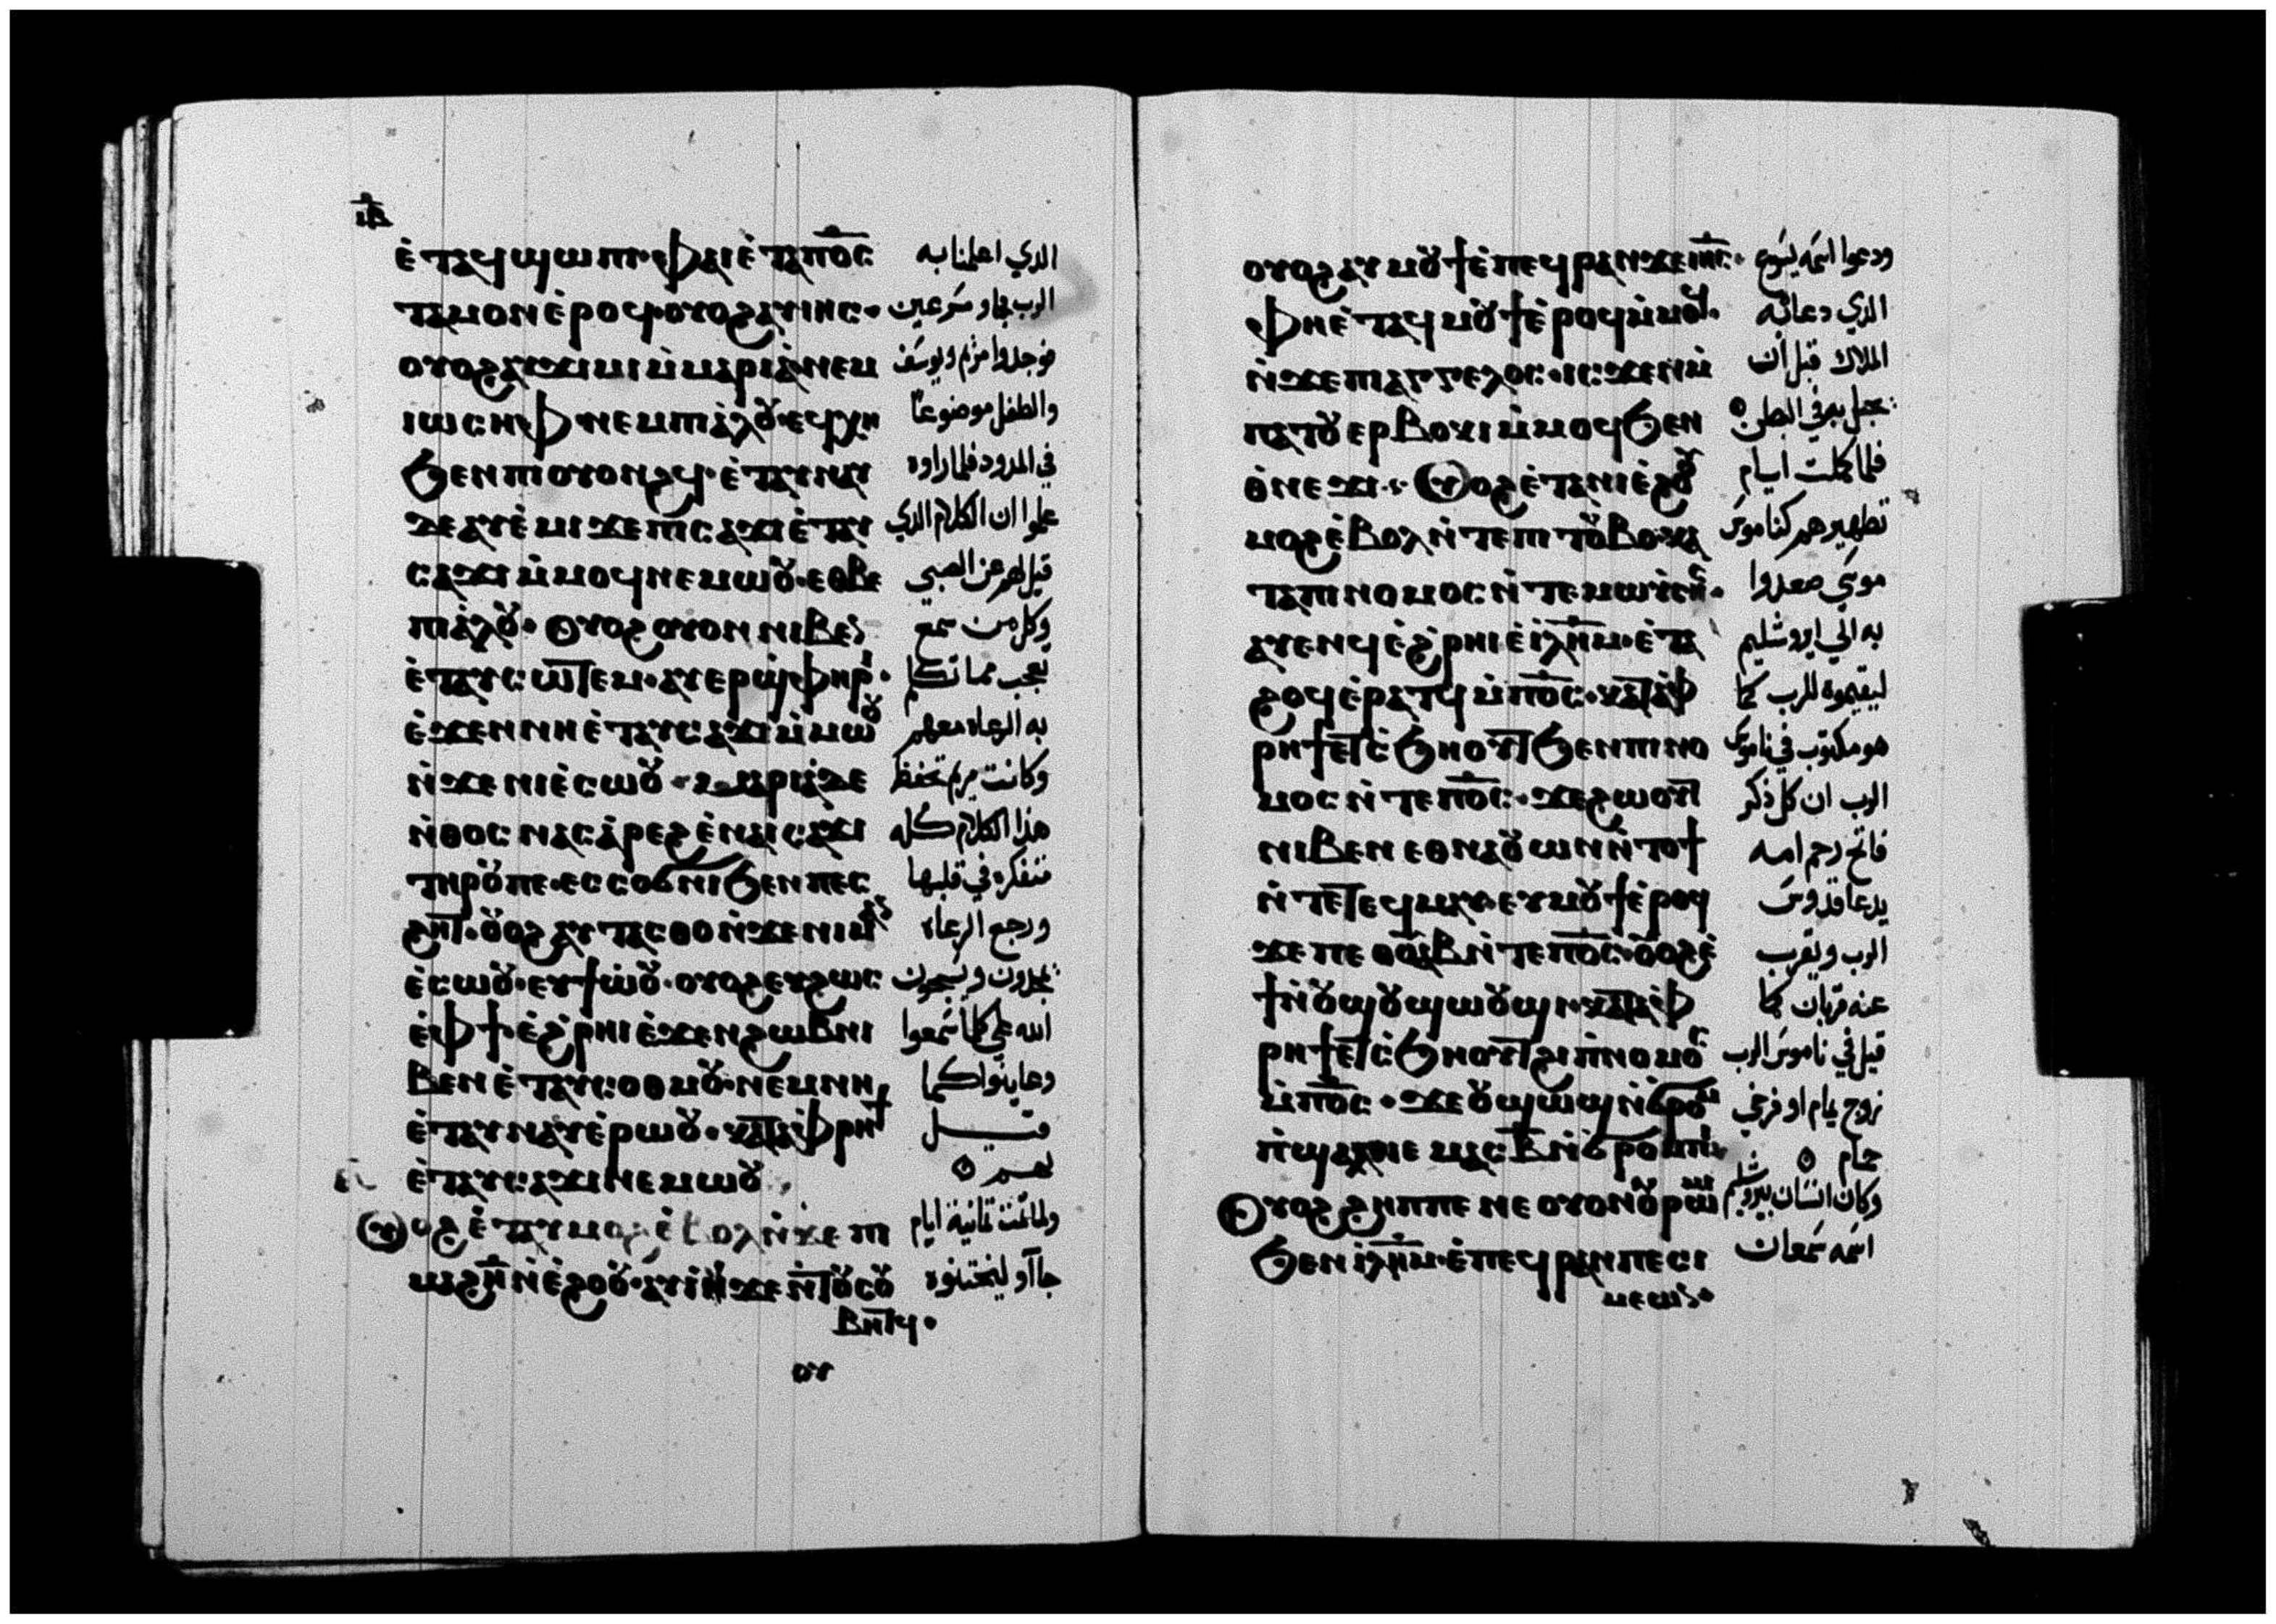 ⲓ̅ⲃ̅
ⲉ̀ⲧⲁϥϣⲱⲡⲓ·ⲫⲁⲓ ⲉ̀ⲧⲁⲡ̅ⲟ̅ⲥ̅
ⲧⲁⲙⲟⲛ ⲉ̀ⲣⲟϥ·ⲟⲩⲟϩ ⲁⲩⲓⲏⲥ·
ⲟⲩⲟϩ ⲁⲩϫⲓⲙⲓ ⲙ̀ⲙⲁⲣⲓⲁ̀·ⲛⲉⲙ
ⲓⲱⲥⲏⲫ·ⲛⲉⲙ ⲡⲓⲁ̀ⲗⲟⲩ·ⲉϥⲭⲏ
ϧⲉⲛ ⲡⲓⲟⲩⲟⲛϩϥ·ⲉ̀ⲧⲁⲩⲛⲁⲩ
ⲇⲉ ⲁⲩⲉ̀ⲙⲓ ϫⲉ ⲡⲓⲥⲁϫⲓ ⲉ̀ⲧⲁⲩ
ⲥⲁϫⲓ ⲙ̀ⲙⲟϥ ⲛⲉⲙⲱⲟⲩ·ⲉⲑⲃⲉ
ⲡⲓⲁ̀ⲗⲟⲩ·ⲟⲩⲟϩ ⲟⲩⲟⲛ ⲛⲓⲃⲉⲛ
ⲉ̀ⲧⲁⲩⲥⲱⲧⲉⲙ·ⲁⲩⲉⲣϣ̀ⲫⲏⲣⲓ·
ⲉ̀ϫⲉⲛ ⲛⲏ ⲉ̀ⲧⲁⲩⲥⲁϫⲓ ⲙ̀ⲙⲱⲟⲩ
ⲛ̀ϫⲉ ⲛⲓⲉ̀ⲥⲱⲟⲩ·ⲙⲁⲣⲓⲁ̀ ⲇⲉ
ⲛ̀ⲑⲟⲥ ⲛⲁⲥⲁ̀ⲣⲉϩ ⲉ̀ⲛⲁⲓⲥⲁϫⲓ
ⲧⲏⲣⲟⲩ ⲡⲉ·ⲉⲥⲥⲟϭⲛⲓ ϧⲉⲛ ⲡⲉⲥ
ϩⲏⲧ·ⲟⲩⲟϩ ⲁⲩⲧⲁⲥⲑⲟ ⲛ̀ϫⲉ ⲛⲓⲙⲁⲛ
ⲉ̀ⲥⲱⲟⲩ·ⲉⲩϯⲱ̀ⲟⲩ·ⲟⲩⲟϩ ⲉⲩϩⲱⲥ
ⲉ̀ⲫϯ·ⲉ̀ϩ̀ⲣⲏⲓ ⲉ̀ϫⲉⲛ ϩⲱⲃ ⲛⲓ
ⲃⲉⲛ ⲉ̀ⲧⲁⲩⲥⲟⲑⲙⲟⲩ·ⲛⲉⲙ ⲛⲏ
ⲉ̀ⲧⲁⲩⲛⲁⲩ ⲉ̀ⲣⲱⲟⲩ·ⲕⲁⲧⲁ ⲫ̀ⲣⲏϯ
ⲉ̀ⲧⲁⲩⲥⲁϫⲓ ⲛⲉⲙⲱⲟⲩ
ⲟⲩⲟϩ ⲉ̀ⲧⲁⲩⲙⲟϩ ⲉ̀ⲃⲟⲗ ⲛ̀ϫⲉ ⲡⲓ
ⲙⲁϩⲏ̅ ⲛ̀ⲉ̀ϩⲟⲟⲩ·ⲁⲩⲓ̀ ϫⲉ ⲛ̀ⲧⲟⲩⲥⲟⲩ
ⲃⲏⲧϥ·
ⲟⲩ
الدي اعلمنا به
الرب فجاو مسرعين
فوجدوا مريم ويوسف
والطفل موضوعًا
في المدود فلما راوه
علموا ان الكلام الدي
قيل لهم عن الصبي
وكل من سمع
يعجب مما تكلم
به الرعاه معهم
وكانت مريم تحفظ
هذا الكلام كله
متفكره في قلبها
ورجع الرعاه
يمجدون ويسبحون
الله علي كلما سمعوا
وعاينوا كما
قيل
لهم
ولما تمت تمانية ايام
جاآو ليختنوه
ⲟⲩⲟϩ ⲁⲩⲙⲟⲩϯ ⲉ̀ⲡⲉϥⲣⲁⲛ ϫⲉ ⲓⲏ̅ⲥ̅·
ⲫⲏ ⲉ̀ⲧⲁϥⲙⲟⲩϯ ⲉ̀ⲣⲟϥ ⲙ̀ⲙⲟϥ·
ⲛ̀ϫⲉ ⲡⲓⲁⲅⲅⲉⲗⲟⲥ·ⲓⲥϫⲉⲛ ⲙ̀
ⲡⲁⲧⲟⲩⲉⲣⲃⲟⲕⲓ ⲙ̀ⲙⲟϥ ϧⲉⲛ
ⲑ̀ⲛⲉϫⲓ·ⲟⲩⲟϩ ⲉ̀ⲧⲁⲛⲓⲉ̀ϩⲟⲟⲩ
ⲙⲟϩ ⲉ̀ⲃⲟⲗ ⲛ̀ⲧⲉ ⲡⲓⲧⲟⲩⲃⲟ·ⲕⲁ
ⲧⲁ ⲡⲓⲛⲟⲙⲟⲥ ⲛ̀ⲧⲉ ⲙⲱⲩ̀ⲥⲏⲥ·
ⲁⲩⲉⲛϥ ⲉ̀ϩ̀ⲣⲏⲓ ⲉ̀ⲓⲗ̅ⲏ̅ⲙ̅·ⲉ̀ⲧⲁ
ϩⲟϥ ⲉ̀ⲣⲁⲧϥ ⲙ̀ⲡ̅ⲟ̅ⲥ̅·ⲕⲁⲧⲁ ⲫ̀
ⲣⲏϯ ⲉⲧⲥ̀ϧⲏⲟⲩⲧ ϧⲉⲛ ⲡⲓⲛⲟ
ⲙⲟⲥ ⲛ̀ⲧⲉ ⲡ̅ⲟ̅ⲥ̅·ϫⲉ ϩⲱⲟⲩⲧ
ⲛⲓⲃⲉⲛ ⲉⲑⲛⲁⲟⲩⲱⲛ ⲛ̀ⲧⲟϯ
ⲛ̀ⲧⲉ ⲧⲉϥⲙⲁⲩ·ⲉⲩⲙⲟⲩϯ ⲉ̀ⲣⲟϥ
ϫⲉ ⲡⲉⲑⲟⲩⲁⲃ ⲛ̀ⲧⲉ ⲡ̅ⲟ̅ⲥ̅·ⲟⲩⲟϩ ⲉ̀
ϯ ⲛ̀ⲟⲩϣⲟⲩϣⲱⲟⲩϣⲓ·ⲕⲁⲧⲁ ⲫ̀
ⲣⲏϯ ⲉⲧⲥ̀ϧⲏⲟⲩⲧ ϩⲓ ⲡ̀ⲛⲟⲙⲟⲥ
ⲙ̀ⲡ̅ⲟ̅ⲥ̅·ϫⲉ ⲟⲩϣⲱϣ ⲛ̀ϭⲣⲟⲙ
ⲡϣⲁⲗ ⲓⲉ ⲙⲁⲥ ⲃ̅ ⲛ̀ϭⲣⲟⲙⲡⲓ
ⲟⲩⲟϩ ϩⲏⲡⲡⲉ ⲛⲉ ⲟⲩⲟⲛ ⲟⲩⲣⲱⲙⲓ
ϧⲉⲛ ⲓ̀ⲗ̅ⲏ̅ⲙ̅·ⲉ̀ⲡⲉϥⲣⲁⲛ ⲡⲉ ⲥⲓ
ⲙⲉⲱⲛ·
ودعوا اسمه يسوع
الدي دعاه به
الملاك قبل ان
تحبل به في البطن
فلما كملت ايام
تطهيرهم كناموس
موسي صعدوا
به الي ايروشليم
ليقيموه للرب كما
هو مكتوب في ناموس
الرب ان كل ذكر
فاتح رحم امه
يدعا قدوس
الرب ويقرب
عنه قربان كما
قيل في ناموس الرب
زوج يمام او فرخي
حمام
وكان انسان بيروشليم
اسمه سمعان